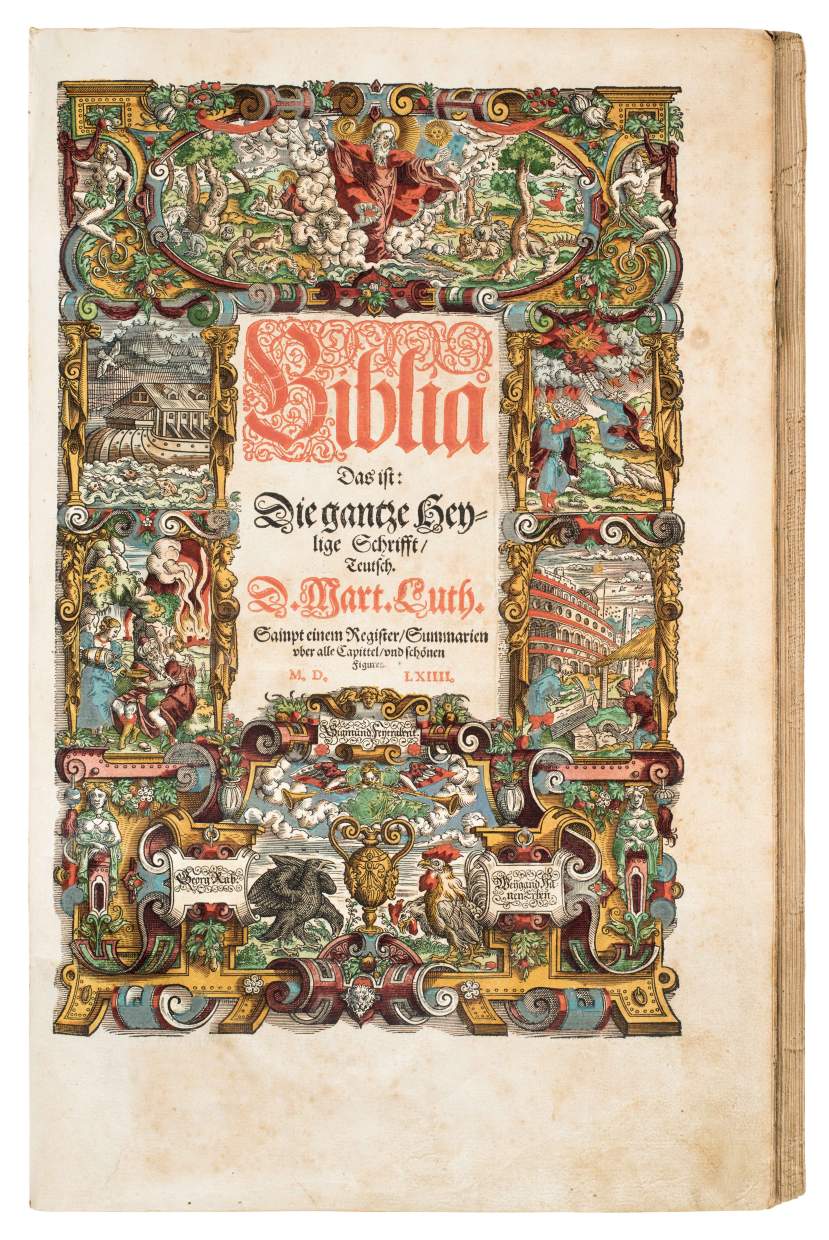 Biblia
Das ist:
Die gantze Hey=
lige Schrifft/
Teutsch.
D. Mart. Luth.
Sampt einem Register/Summarien
vber alle Capittel/vnd schönen
Figuren.
M. D. LXIIII.
Sigmund Feyerabent.
Georg Rab.
Weygand Ha
nen Erben